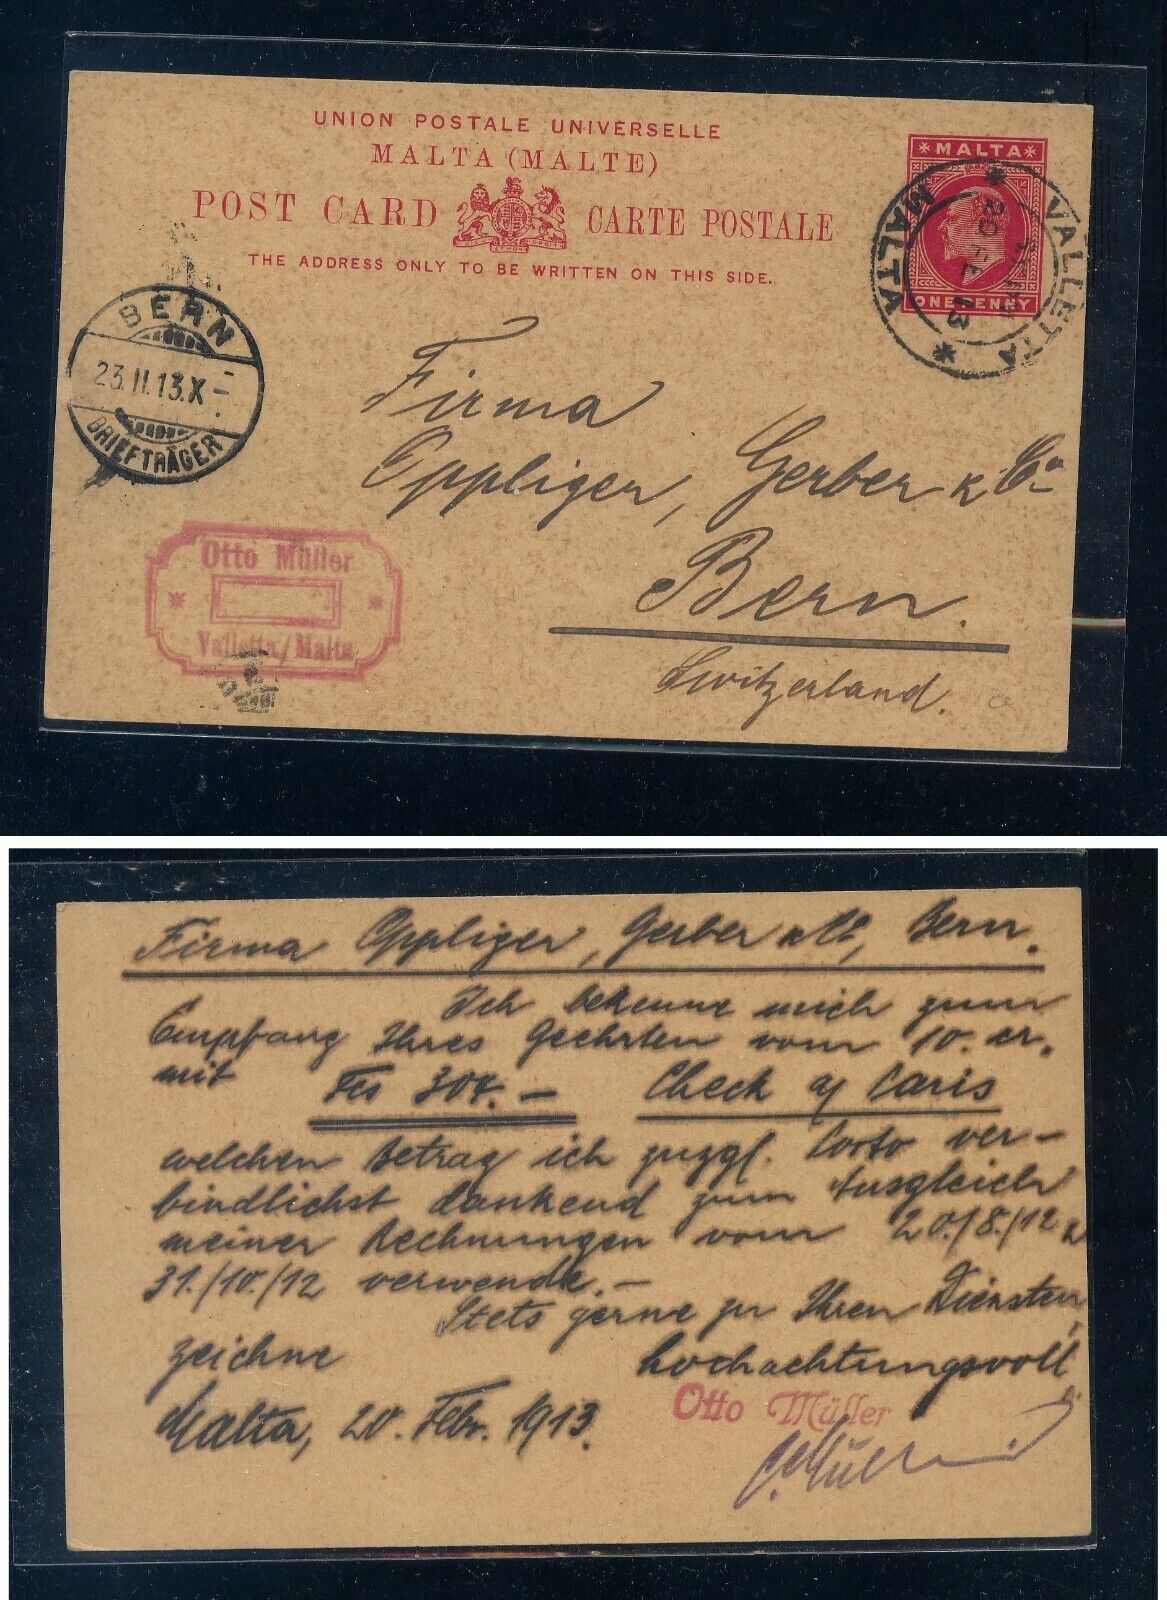 UNION POSTALE UNIVERSELLE
MALTA (MALTE)
POST CARD CARTE POSTALE
THE ADDRESS ONLY TO BE WRITTEN ON THIS SIDE.
*MALTA*
ONE PENNY
VALLETTA
MALTA
20 FE 13
BERN
23.II.13.X-
BRIEFTRÄGER
Firma
Oppliger, Gerber & Co
Bern.
Switzerland.
Otto Müller
Valletta/Malta
Firma Oppliger, Gerber & Co, Bern.
Ich bekenne mich zum
Empfang Ihres Geehrten vom 10. cr.
mit Fcs 307.– Check a/ Paris
welchen Betrag ich zuzgl. Porto ver-
bindlichst dankend zum Ausgleich
meiner Rechnungen vom 20./8./12 &
31./10./12 verwende.–
Stets gerne zu Ihren Diensten,
zeichne hochachtungsvoll
Otto Müller
Malta, 20. Febr. 1913.
O. Müller